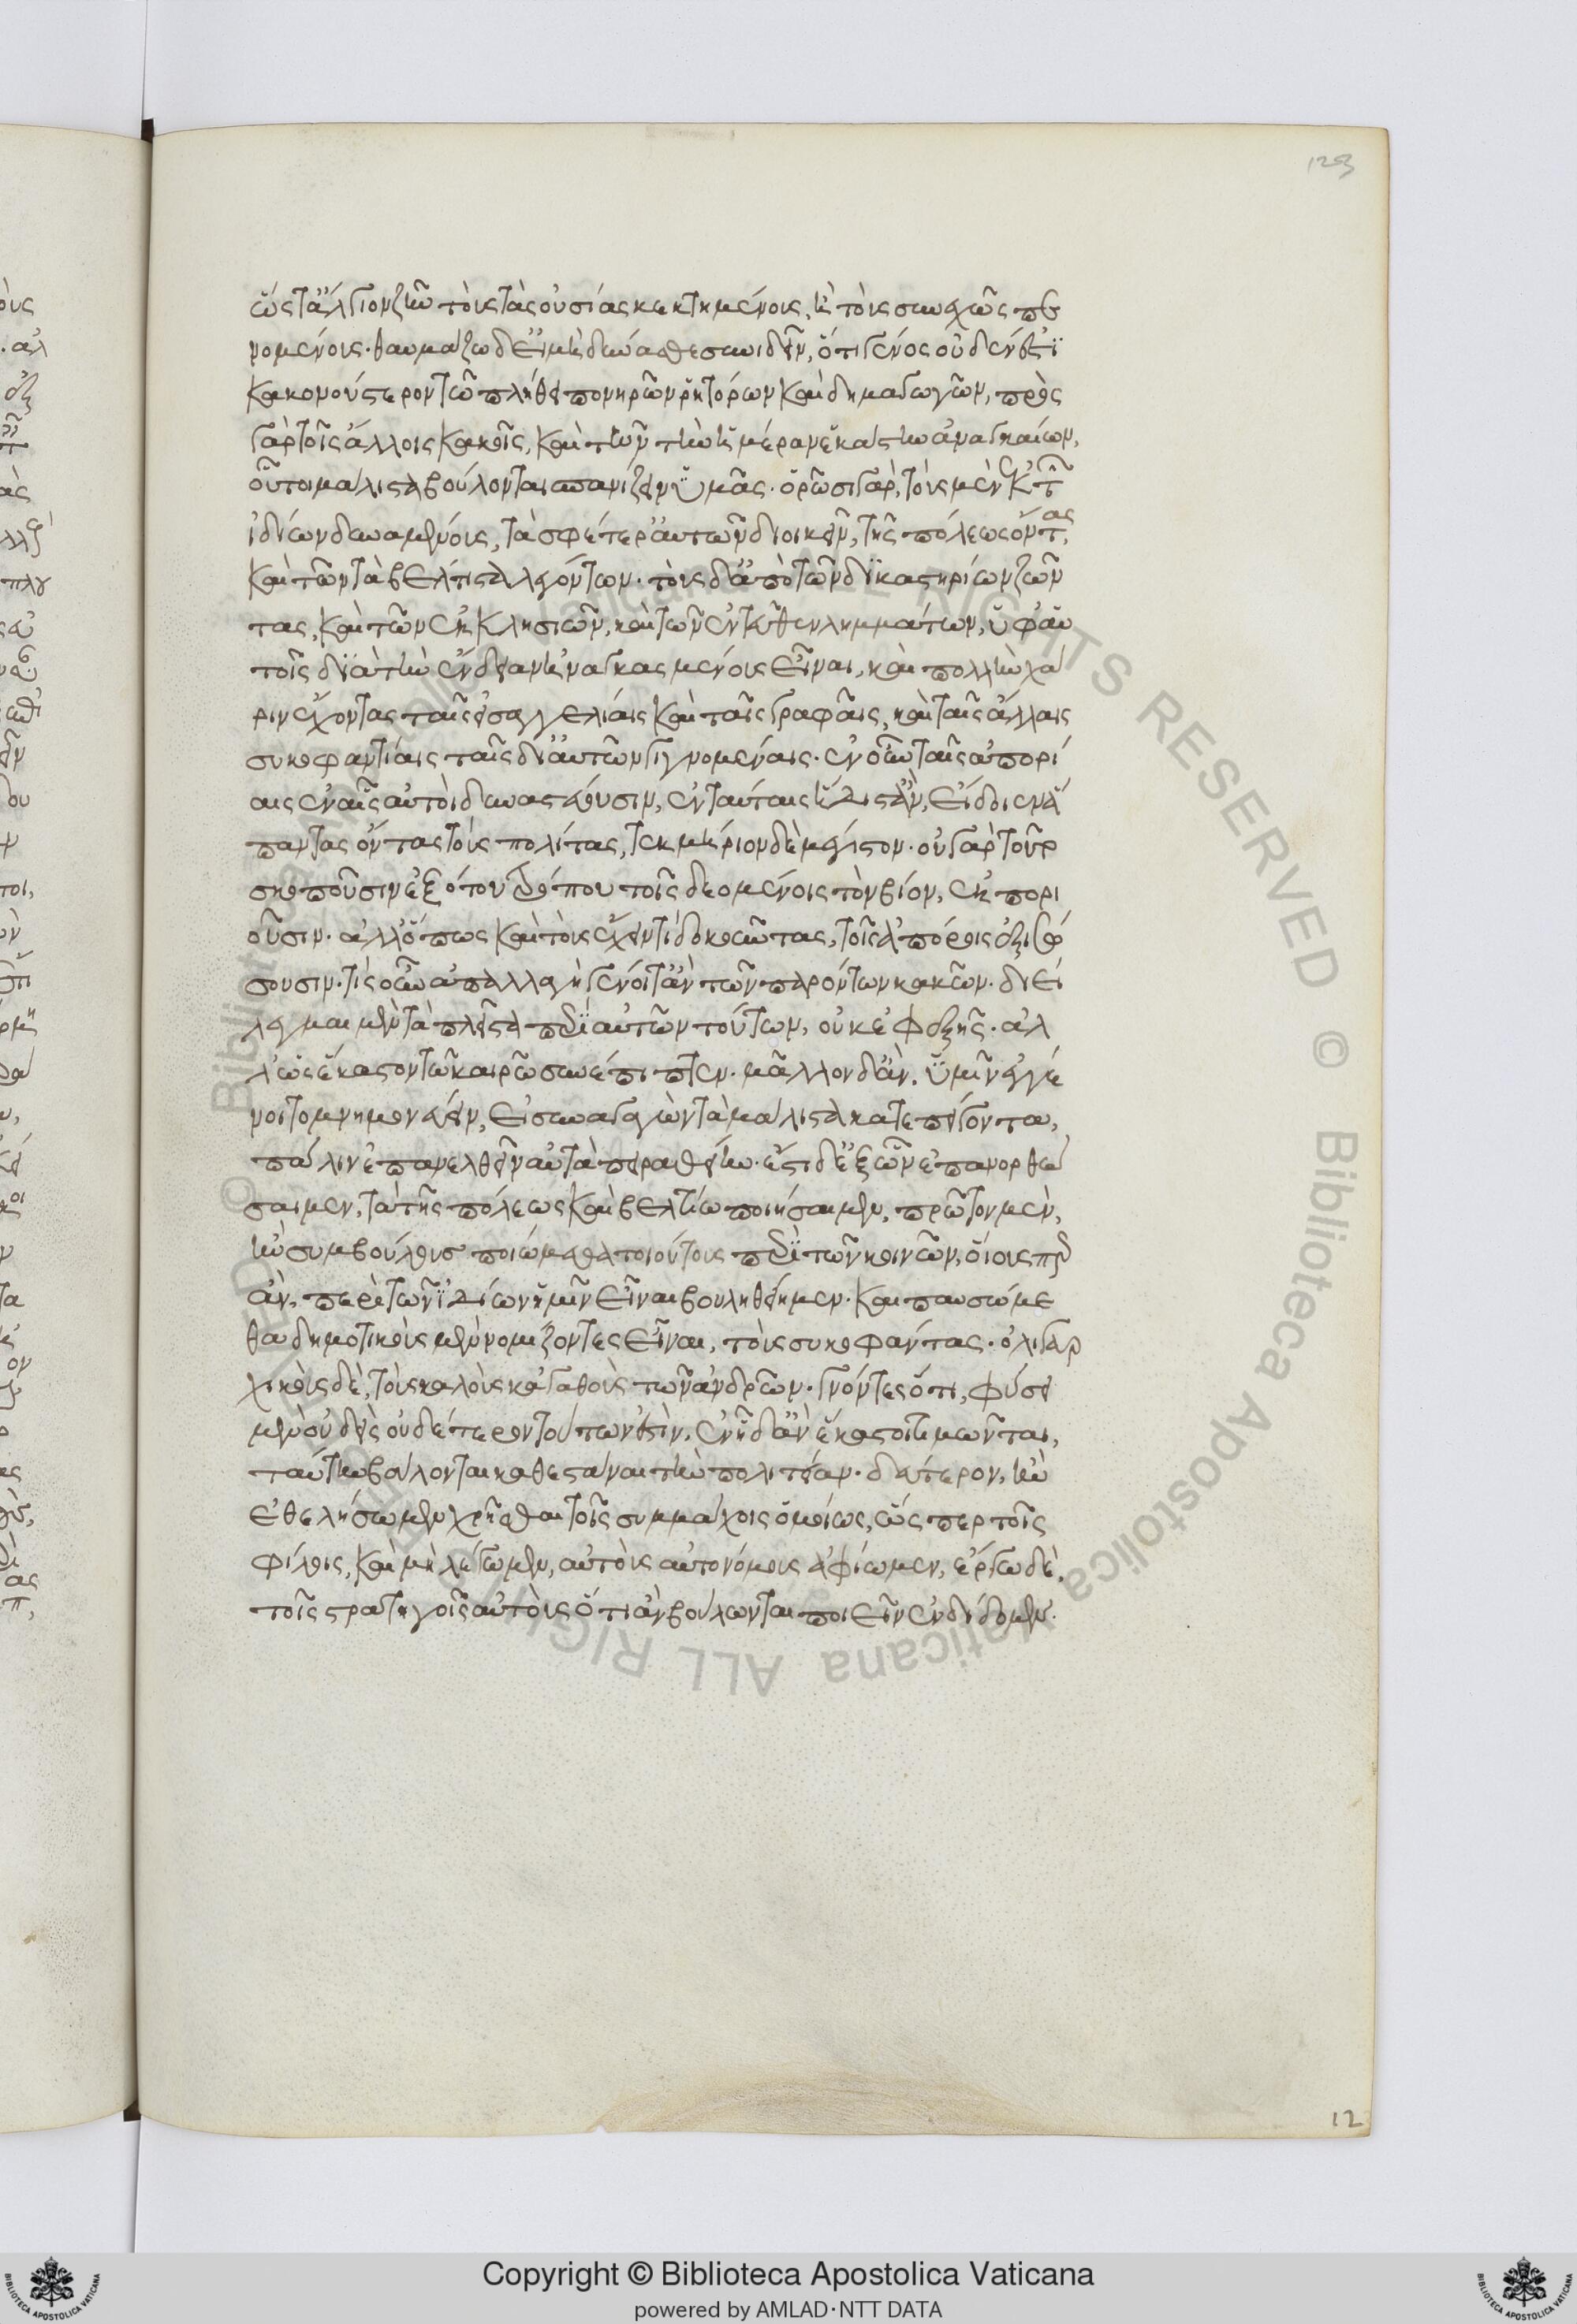 ὥς τ' ἄλγιον ζῆν τοὺς τὰς οὐσίας κεκτημένους, ἢ τοὺς συνεχῶς πε
νομένους. θαυμάζω δ' εἰ μὴ δύνασθε συνιδεῖν, ὅτι γένος οὐδέν ἐστι
κακονούστερον τῷ πλήθει πονηρῶν ῥητόρων καὶ δημαγωγῶν, πρὸς
γὰρ τοῖς ἄλλοις κακοῖς, καὶ τῶν τὴν ἡμέραν ἑκάστην ἀναγκαίων,
οὗτοι μάλιστα βούλονται σπανίζειν ὑμᾶς. ὁρῶσι γὰρ, τοὺς μὲν ἐκ τῶν
ἰδίων δυναμένους, τὰ σφέτερ' αὐτῶν διοικεῖν, τῆς πόλεως ὄντας,
καὶ τῶν τὰ βέλτιστα λεγόντων. τοὺς δ' ἀπὸ τῶν δικαστηρίων ζῶν
τας, καὶ τῶν ἐκκλησιῶν, καὶ τῶν ἐντεῦθεν λημμάτων, ὑφ' αὑ
τοῖς διὰ τὴν ἔνδειαν ἠναγκασμένους εἶναι, καὶ πολλὴν χά
ριν ἔχοντας ταῖς εἰσαγγελίαις καὶ ταῖς γραφαῖς, καὶ ταῖς ἄλλαις
συκοφαντίαις ταῖς δι' αὐτῶν γιγνομέναις. ἐν οὖν ταῖς ἀπορί
αις ἐν αἷς αὐτοὶ δυναστεύουσιν, ἐν ταύταις ἥδιστ' ἂν, εἴδοιεν ἅ
παντας ὄντας τοὺς πολίτας, τεκμήριον δὲ μέγιστον. οὐ γὰρ τοῦτο
σκοποῦσιν ἐξ ὅτου τρόπου τοῖς δεομένοις τὸν βίον, ἐκπορι
οῦσιν. ἀλλ' ὅπως καὶ τοὺς ἔχειν τι δοκοῦντας, τοῖς ἀπόροις ἐξισώ
σουσιν. τίς οὖν ἀπαλλαγὴ γένοιτ' ἂν τῶν παρόντων κακῶν. διεί
λεγμαι μὲν τὰ πλεῖστα περὶ αὐτῶν τούτων, οὐκ ἐφεξῆς. ἀλ
λ' ὡς ἕκαστον τῷ καιρῷ συνέπιπτεν. μᾶλλον δ' ἂν, ὑμῖν ἐγγέ
νοιτο μνημονεύειν, εἰ συναγαγὼν τὰ μάλιστα κατεπείγοντα,
πάλιν ἐπανελθεῖν αὐτὰ πειραθείην. ἔστι δ' ἐξ ὧν ἐπανορθώ
σαιμεν, τὰ τῆς πόλεως καὶ βελτίω ποιήσαιμεν, πρῶτον μὲν,
ἢν συμβούλους ποιώμεθα τοιούτους περὶ τῶν κοινῶν, οἵους περ
ἂν, περὶ τῶν ἰδίων ἡμῖν εἶναι βουληθείημεν. καὶ παυσώμε
θα δημοτικοὺς μὲν νομίζοντες εἶναι, τοὺς συκοφάντας. ὀλιγαρ
χικοὺς δὲ, τοὺς καλοὺς κἀγαθοὺς τῶν ἀνδρῶν. γνόντες ὅτι, φύσει
μὲν οὐδεὶς οὐδέτερον τούτων ἐστὶν. ἐν ᾗ δ' ἂν ἕκαστοι τιμῶνται,
ταύτην βούλονται καθεστάναι τὴν πολιτείαν. δεύτερον, ἢν
ἐθελήσωμεν χρῆσθαι τοῖς συμμάχοις ὁμοίως, ὥσπερ τοῖς
φίλοις, καὶ μὴ λόγῳ μὲν, αὐτοὺς αὐτονόμους ἀφίωμεν, ἔργῳ δὲ,
τοῖς στρατηγοῖς αὐτοὺς ὅ τι ἂν βούλωνται ποιεῖν ἐνδίδομεν.
123
12
© Biblioteca Apostolica Vaticana ALL RIGHTS RESERVED
Copyright © Biblioteca Apostolica Vaticana
powered by AMLAD·NTT DATA